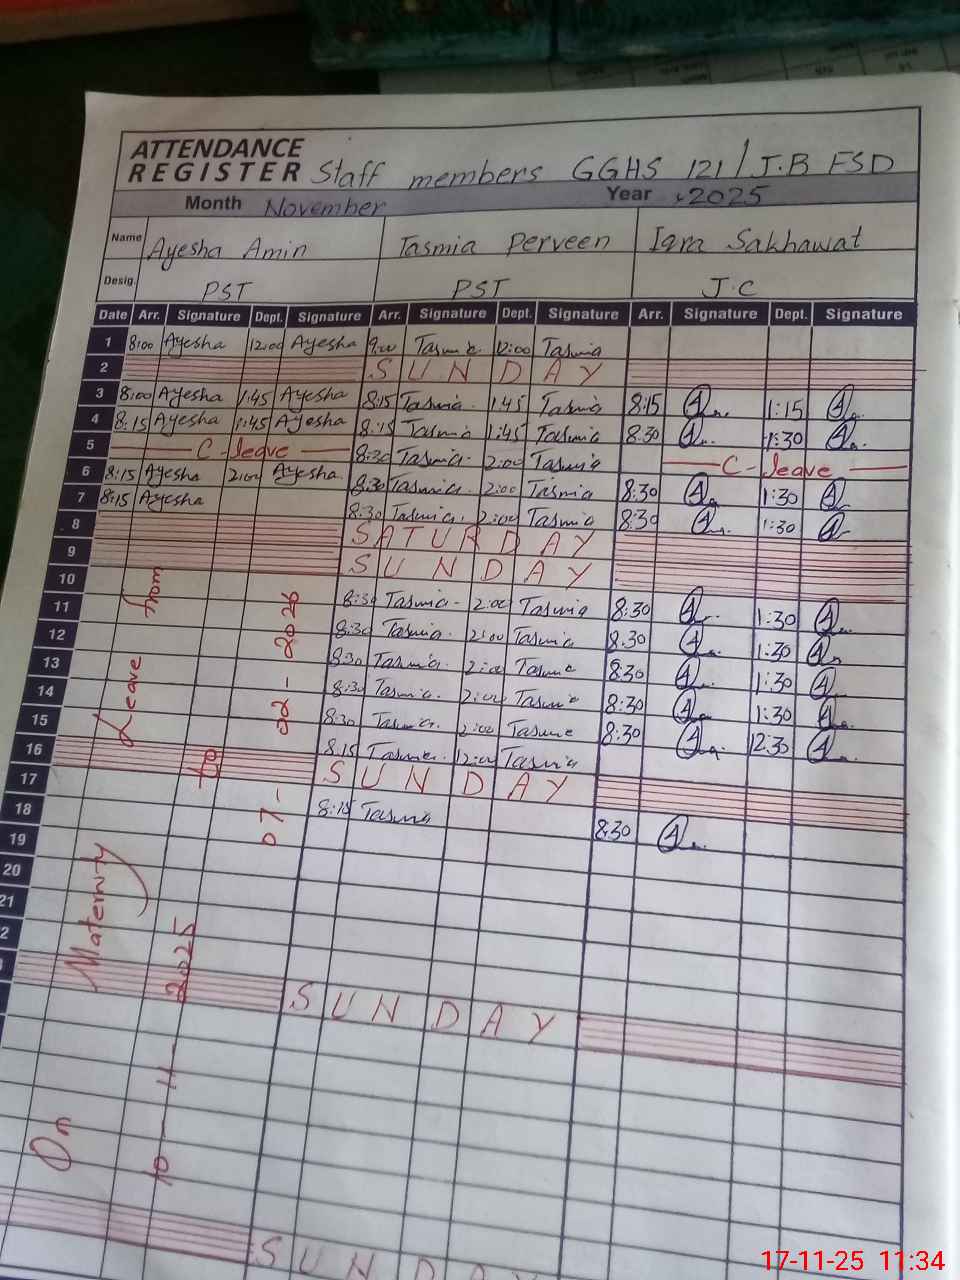 ATTENDANCE
REGISTER Staff members GGHS 121/J.B FSD
Month November Year 2025
Name Ayesha Amin Tasmia Perveen Iqra Sakhawat
Desig. PST PST J.C
Date Arr. Signature Dept. Signature Arr. Signature Dept. Signature Arr. Signature Dept. Signature
1 8:00 Ayesha 12:00 Ayesha 9:00 Tasmia 12:00 Tasmia
2 SUNDAY
3 8:00 Ayesha 1:45 Ayesha 8:15 Tasmia 1:45 Tasmia 8:15 1:15
4 8:15 Ayesha 1:45 Ayesha 8:15 Tasmia 1:45 Tasmia 8:30 1:30
5 C-leave 8:30 Tasmia 2:00 Tasmia C-leave
6 8:15 Ayesha 2:00 Ayesha 8:30 Tasmia 2:00 Tasmia 8:30 1:30
7 8:15 Ayesha 8:30 Tasmia 2:00 Tasmia 8:30 1:30
8 SATURDAY
9 SUNDAY
10 8:30 Tasmia 2:00 Tasmia 8:30 1:30
11 8:30 Tasmia 2:00 Tasmia 8:30 1:30
12 8:30 Tasmia 2:00 Tasmia 8:30 1:30
13 8:30 Tasmia 2:00 Tasmia 8:30 1:30
14 8:30 Tasmia 2:00 Tasmia 8:30 12:30
15 8:15 Tasmia 12:00 Tasmia
16 SUNDAY
17 8:15 Tasmia 8:30
18
19
20
21
SUNDAY
SUNDAY
On Maternity Leave from
10-11-2025 to
07-02-2026
17-11-25 11:34